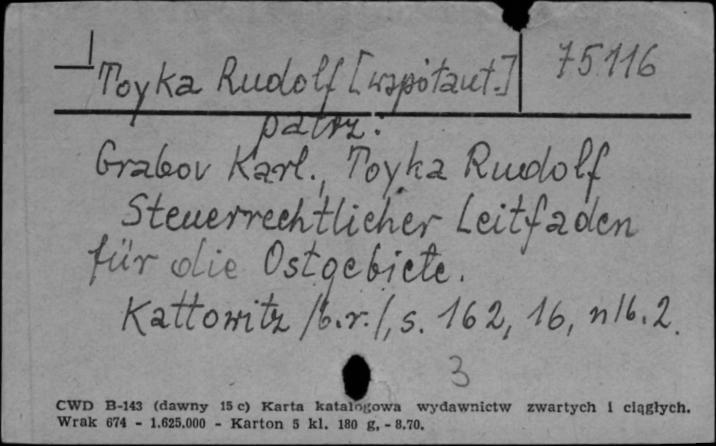 Toyka Rudolf [współaut.] 75116
patrz:
Grabov Karl., Toyka Rudolf
Steuerrechtlicher Leitfaden
für die Ostgebiete.
Kattowitz /b.r./, s. 162, 16, nlb. 2.
3
CWD B-143 (dawny 15 c) Karta katalogowa wydawnictw zwartych i ciągłych.
Wrak 674 - 1.625.000 - Karton 5 kl. 180 g. - 8.70.